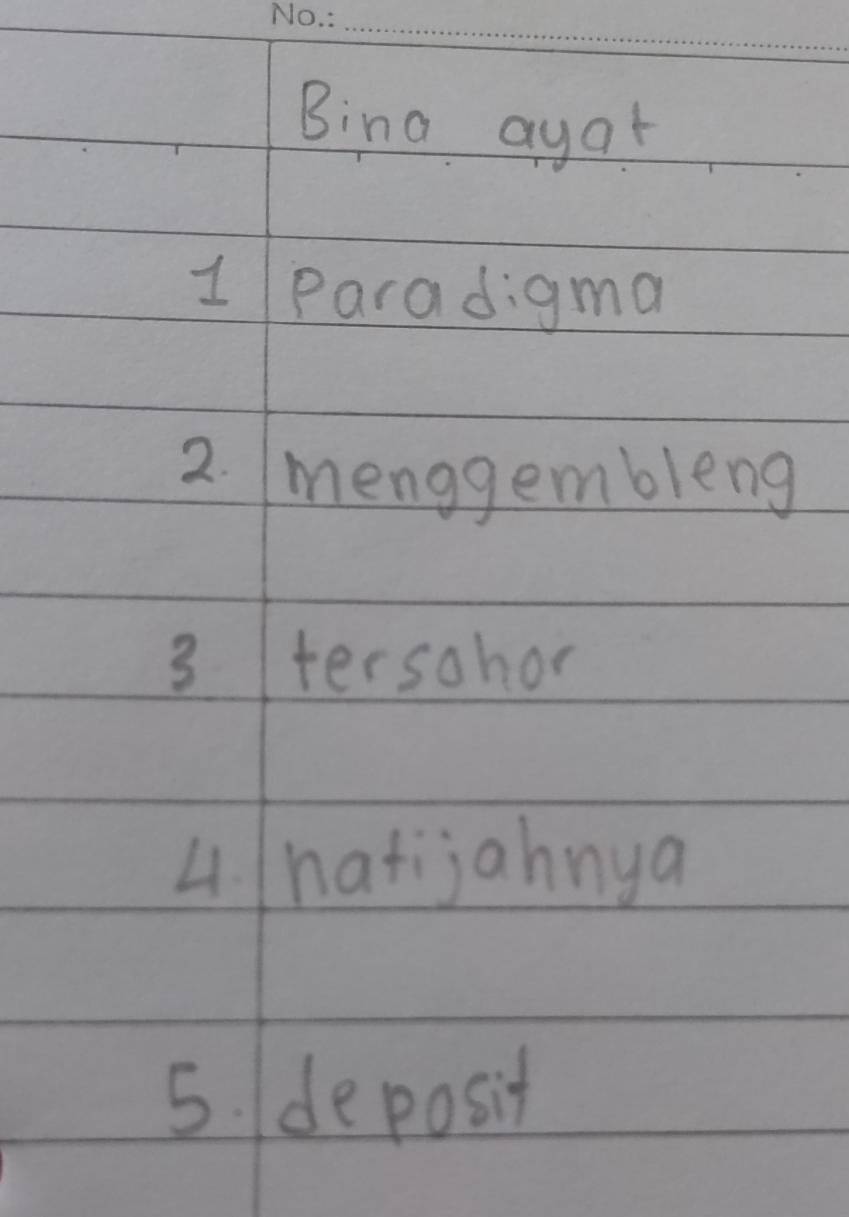 No.:
Bina ayat
1 Paradigma
2. menggembleng
3 tersohor
4. natijahnya
5. deposit